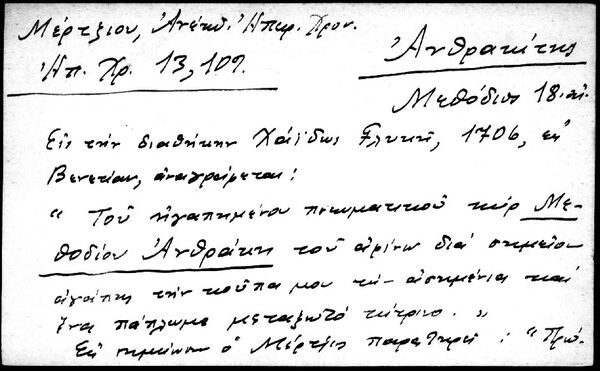 Μέρτζιου, Ἀνέκδ. Ἠπειρ. Χρον.
Ἠπ. Χρ. 13, 109.
Ἀνθρακίτης
Μεθόδιος 18. αἰ.
Εἰς τὴν διαθήκην Χάϊδως Γλυκῆ, 1706, ἐν
Βενετίαν, ἀναγράφεται:
" Τοῦ ἠγαπημένου πνευματικοῦ κὺρ Με-
θοδίου Ἀνθράκη τοῦ ἀφίνω διὰ σημεῖον
ἀγάπης τὴν κοῦπα μου τὴν ἀσημένια καὶ
ἕνα πάπλωμα μεταξωτὸ κίτρινο. "
ὁ Μέρτζιος παρατηρεῖ : " Πρό-